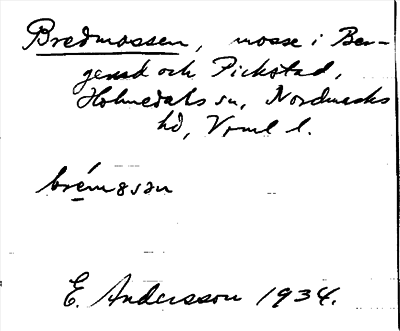 Bredmossen, mosse i Ber-
gerud och Fickstad,
Holmedals sn, Nordmarks
hd, Vrml l.
brémɷsən
E. Andersson 1934.